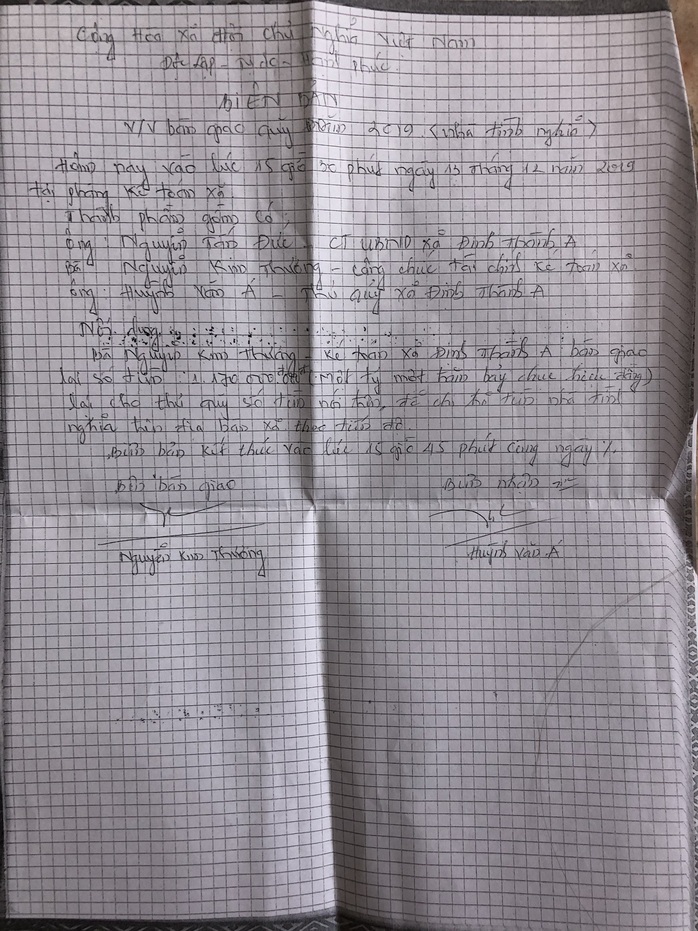 Cộng Hòa Xã Hội Chủ Nghĩa Việt Nam
Độc lập - Tự do - Hạnh phúc
BIÊN BẢN
V/V bàn giao quỹ năm 2019 (nhà tình nghĩa)
Hôm nay vào lúc 15 giờ 30 phút ngày 13 tháng 12 năm 2019
tại phòng kế toán xã.
Thành phần gồm có:
Ông: Nguyễn Tấn Đức - CT UBND xã Định Thành A
Bà: Nguyễn Kim Thương - công chức tài chính kế toán xã
Ông: Huỳnh Văn Á - Thủ quỹ xã Định Thành A
Nội dung
Bà Nguyễn Kim Thương - kế toán xã Định Thành A bàn giao
lại số tiền 1.170.000.000đ (Một tỷ một trăm bảy chục triệu đồng)
lại cho thủ quỹ số tiền nói trên, để chi trả tiền nhà tình
nghĩa trên địa bàn xã theo tiến độ.
Biên bản kết thúc vào lúc 15 giờ 45 phút cùng ngày ./.
Bên bàn giao
Bên nhận
Nguyễn Kim Thương
Huỳnh Văn Á